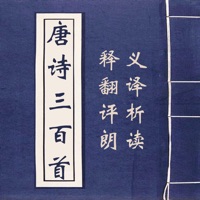 唐诗三百首
释义
翻译
评析
朗读